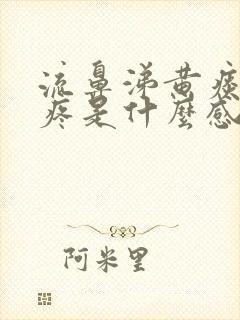 流鼻涕黄痰
疼是什麼感
阿米里